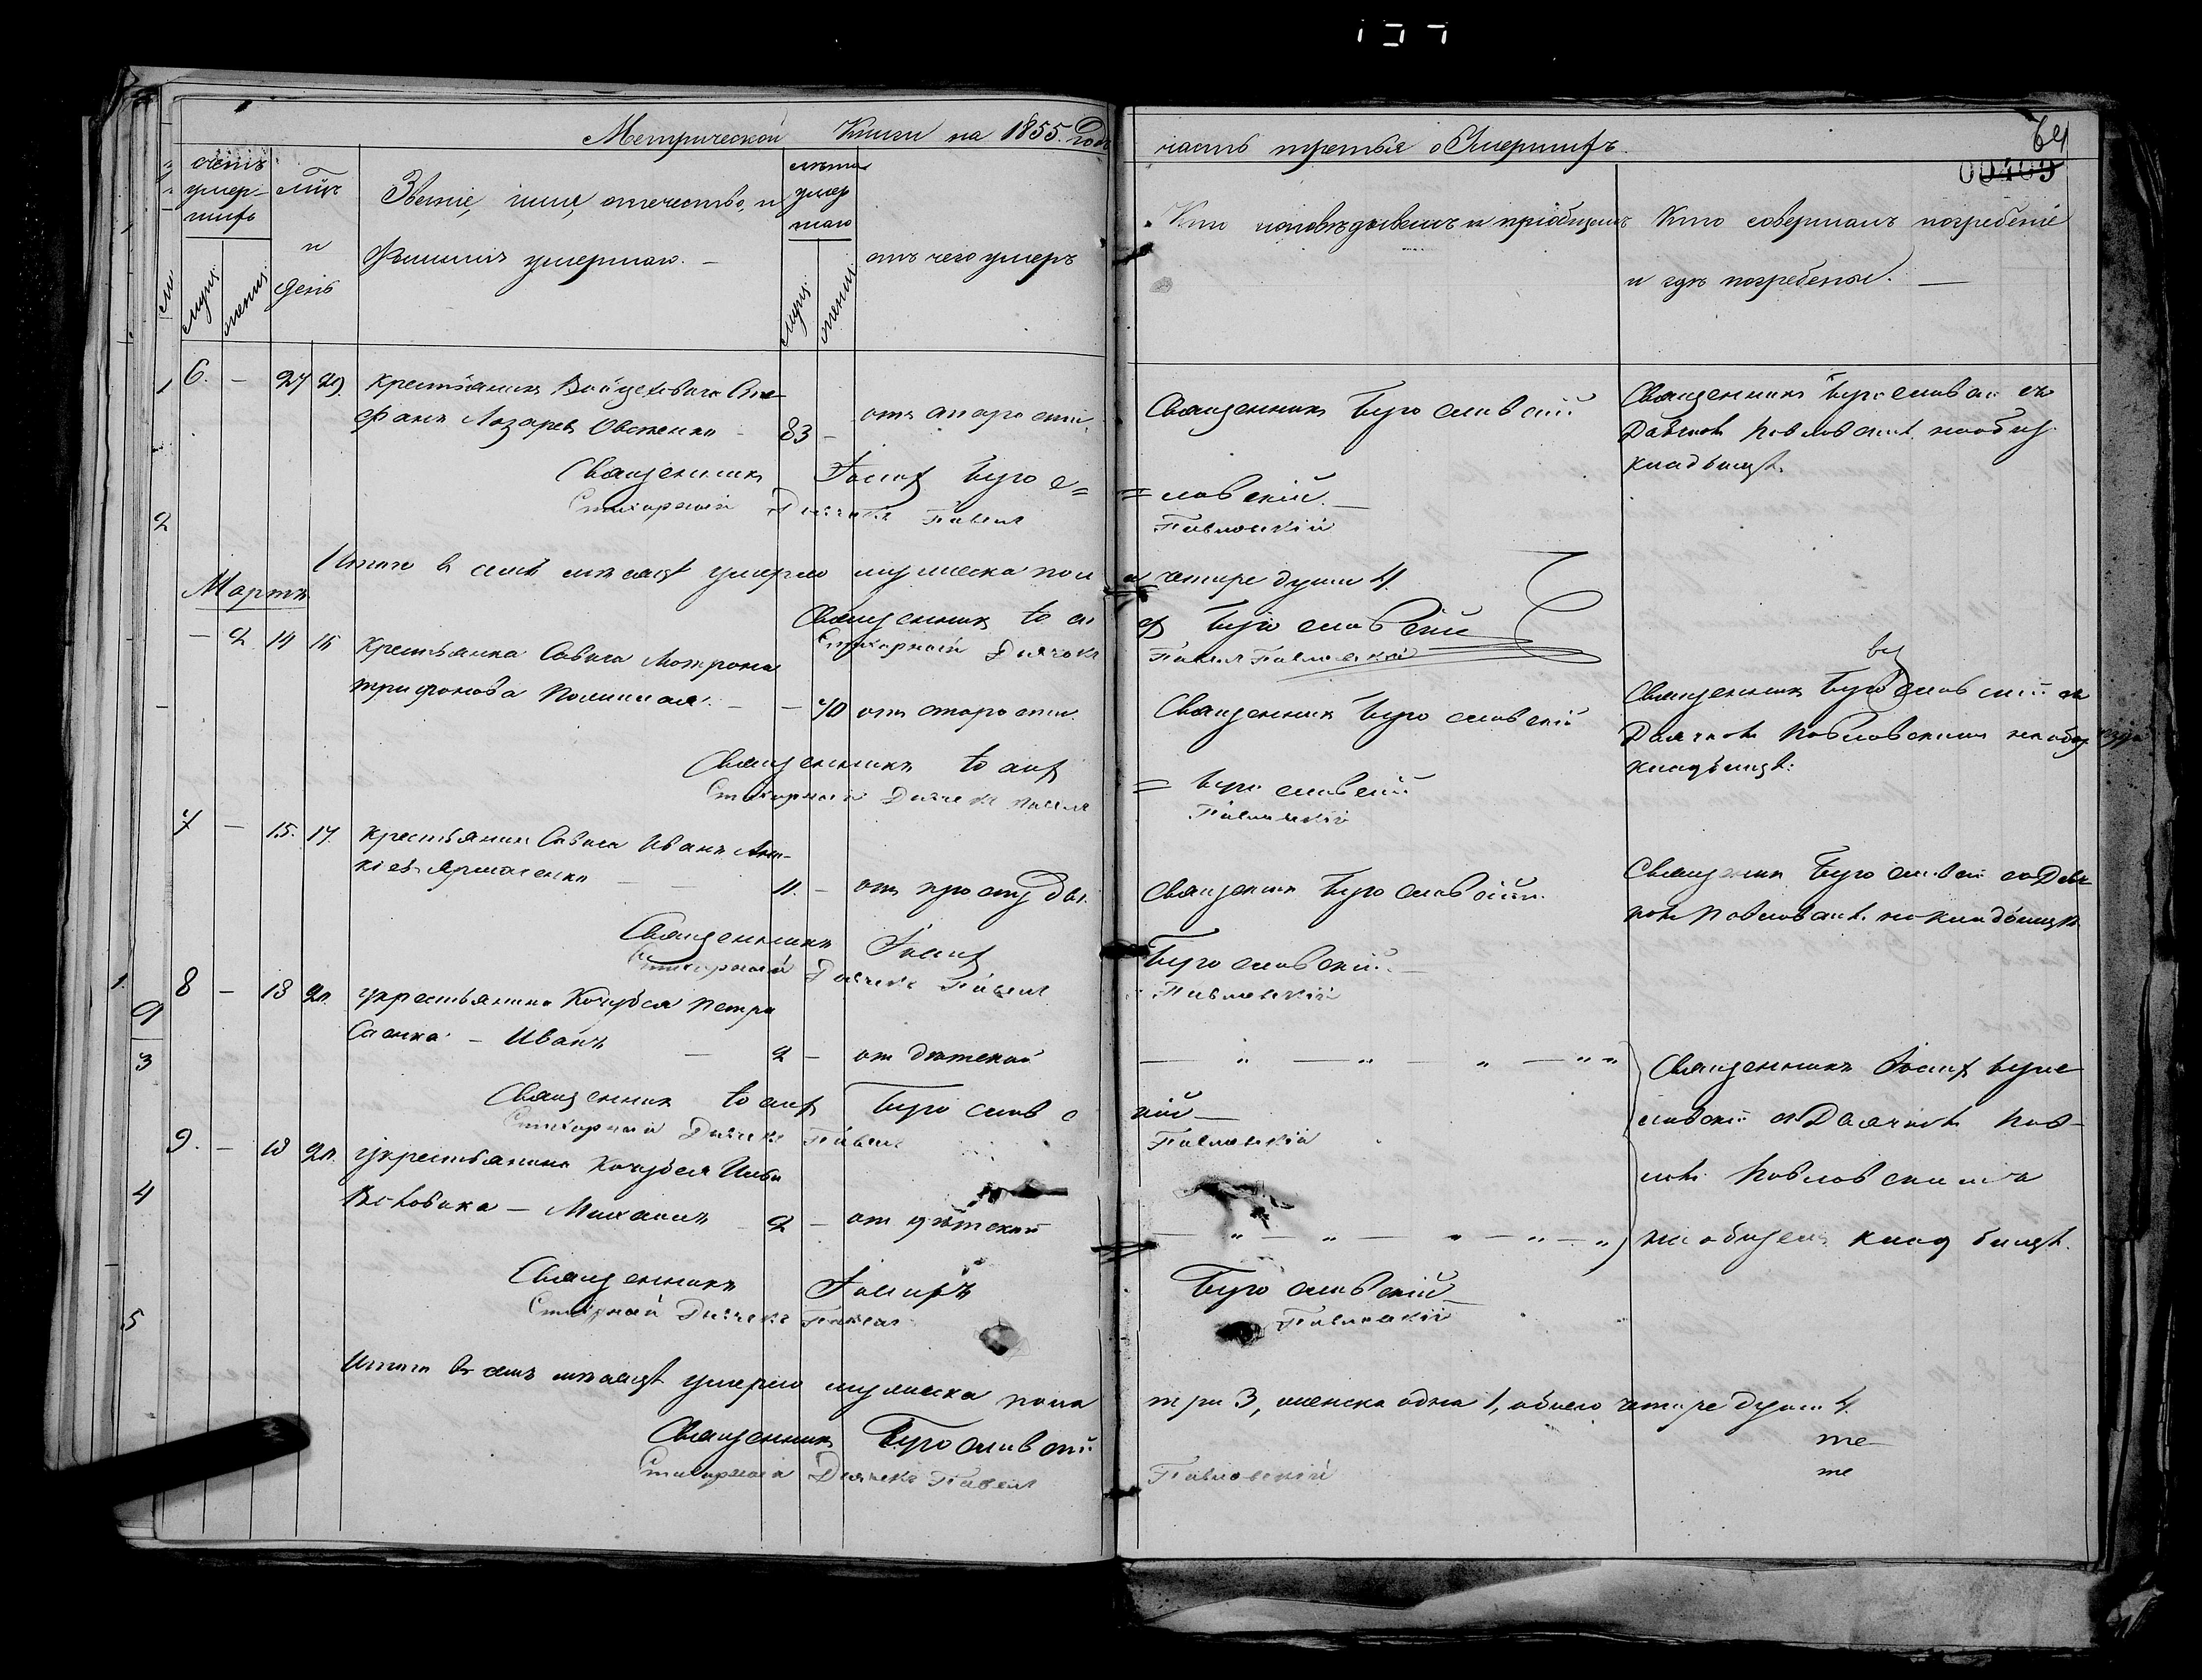 Метрической Книги на 1855. годъ
часть третья о Умершихъ.
64
00409
счетъ умер-шихъ
муж:
женс:
мцъ и день
Званіе, имя, отчество, и
Фамилія умершаго. —
лѣта умер шаго
муж:
женск:
отъ чего умеръ
Кто исповѣдывалъ и пріобщалъ
Кто совершалъ погребеніе
и гдѣ погребены. —
6. — 27 29 крестьянинъ Сте-
фанъ Лазаревъ Овсіенко — 83 — отъ старости.
Священникъ Бугославскій
Священникъ Бугославскій съ
Дьячкомъ Павловскимъ на общ.
кладбищѣ.
Священникъ Іосифъ Бугос=
=лавскій. —
Стихарный Дьячекъ Павелъ
Павловскій
Итого въ семъ мѣсяцѣ умерло мужеска пола
четире души 4.
Священникъ Іосифъ Бугославскій
Стихарный Дьячокъ Павелъ Павловскій
Мартъ
— 2 14 16 Крестьянка Савича Мотрона
Трифонова — — 70 отъ старости.
Священникъ Бугославскій
Священникъ Бугославскій съ
Дьячкомъ Павловскимъ на общ
кладбищѣ.
Священникъ Іосифъ
= Бугославскій
Стихарный Дьячекъ Павелъ
Павловскій
7 — 15. 17. крестьянинъ Савича Иванъ
Ярмоленко — — 11. — отъ простуды.
Священникъ Бугославскій.
Священникъ Бугославскій съ Дьяч
комъ Павловскимъ на кладбищѣ
Священникъ Іосифъ
Бугославскій. —
Стихарный Дьячекъ Павелъ
Павловскій
8 — 18 20. у крестьянина Кочубея Петра
Саенка — Иванъ — 2 — отъ дѣтской
— " — " — " — " "
Священникъ Іосифъ Буго
славскій съ Дьячкомъ Пав-
ломъ Павловскимъ
на общемъ кладбищѣ.
Священникъ Іосифъ Бугославс
кій —
Стихарный Дьячекъ Павелъ
Павловскій
9. — 18 20. у крестьянина Кочубея
— Михаилъ — 2 — отъ дѣтской
— " — " — " — " — "
Священникъ Іосифъ
Бугославскій
Стихарный Дьячекъ Павелъ
Павловскій
Итого въ семъ мѣсяцѣ умерло мужеска пола
три 3, женска одна 1, обоего четире души 4.
Священникъ Бугославскій
те
Стихарный Дьячекъ Павелъ
Павловскій
те